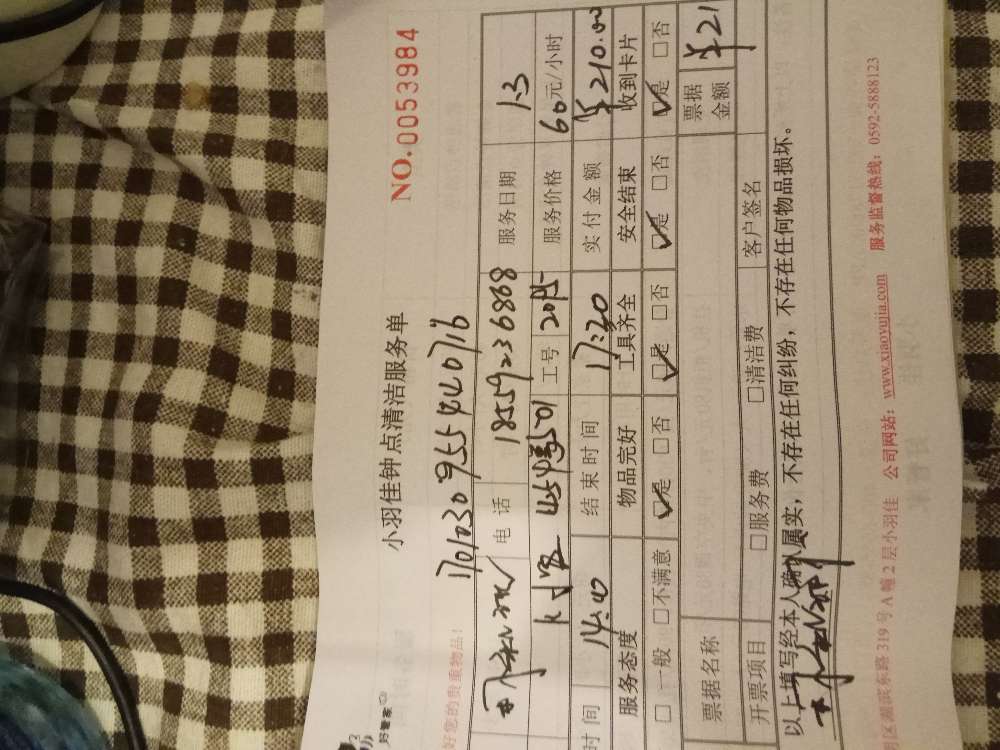 小羽佳钟点清洁服务单
NO.0053984
好管家
好您的贵重物品!
1701030955440716
电 话 18559236868 服务日期 13
45号501 工号 服务价格 60元/小时
时 间 14:40 结 束 时 间 17:30 实 付 金 额 ¥210.00
服务态度 物品完好 工具齐全 安全结束 收到卡片
□一般 □不满意 ☑是 □否 ☑是 □否 ☑是 □否 ☑是 □否
票据名称 票据金额 ¥21
开票项目 □服务费 □清洁费 客户签名
以上填写经本人确认属实,不存在任何纠纷,不存在任何物品损坏。
区湖滨东路 319 号 A 幢 2 层小羽佳 公司网站:www.xiaoyujia.com 服务监督热线:0592-5888123